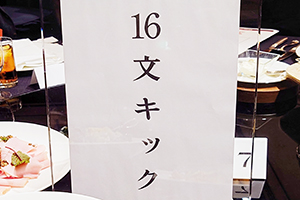 16文キック
7